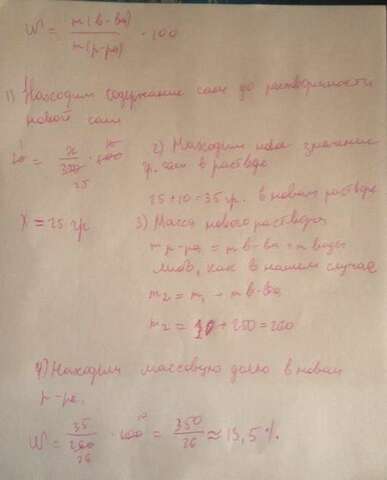 W = m(в-ва) / m(р-ра) · 100
1) Находим содержание соли до растворимости
новой соли
10 = x / 250 · 100
25
2) Находим новое значение
гр. соли в растворе
25 + 10 = 35 гр. в новом растворе
X = 25 гр
3) Масса нового раствора
m р-ра = m в-ва + m воды
либо, как в нашем случае
m2 = m1 + m в-ва
m2 = 10 + 250 = 260
4) Находим массовую долю в новом
р-ре.
W = 35 / 260 · 100 = 350 / 26 ≈ 13,5 %.
26